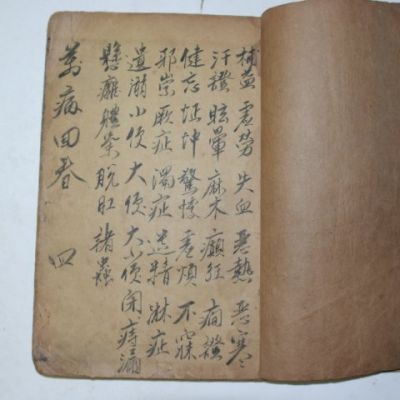 補益 虛勞 失血 惡熱 惡寒
汗證 眩暈 麻木 癲狂 癎證
健忘 怔忡 驚悸 虛煩 不寐
邪祟 厥症 濁症 遺精 淋症
遺溺 小便 大便 大小便閉 痔漏
懸癰 體氣 脫肛 諸蟲
萬病回春 四